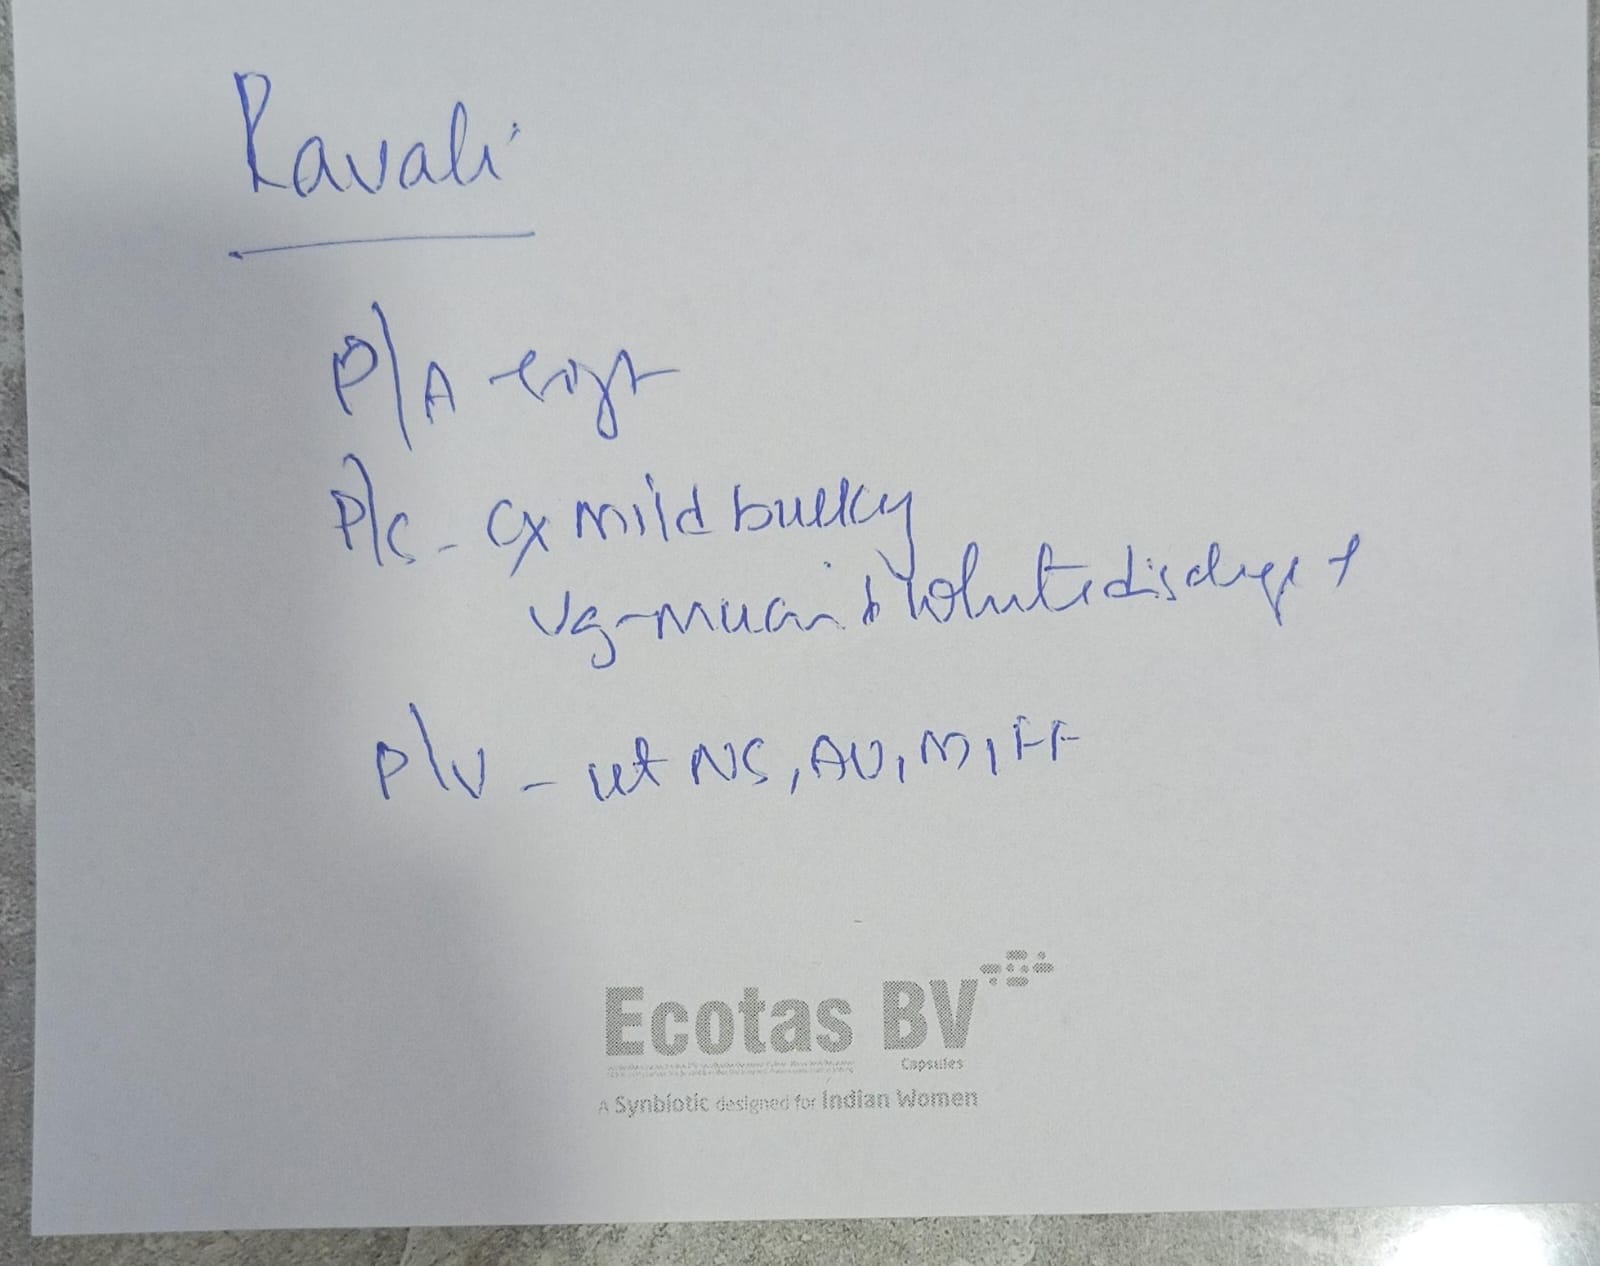 Ravali
P/A soft
P/S - Cx mild bulky
Vg - mucoid white discharge +
P/V - ut NS, AV, M, FF
Ecotas BV
Capsules
A Synbiotic designed for Indian Women